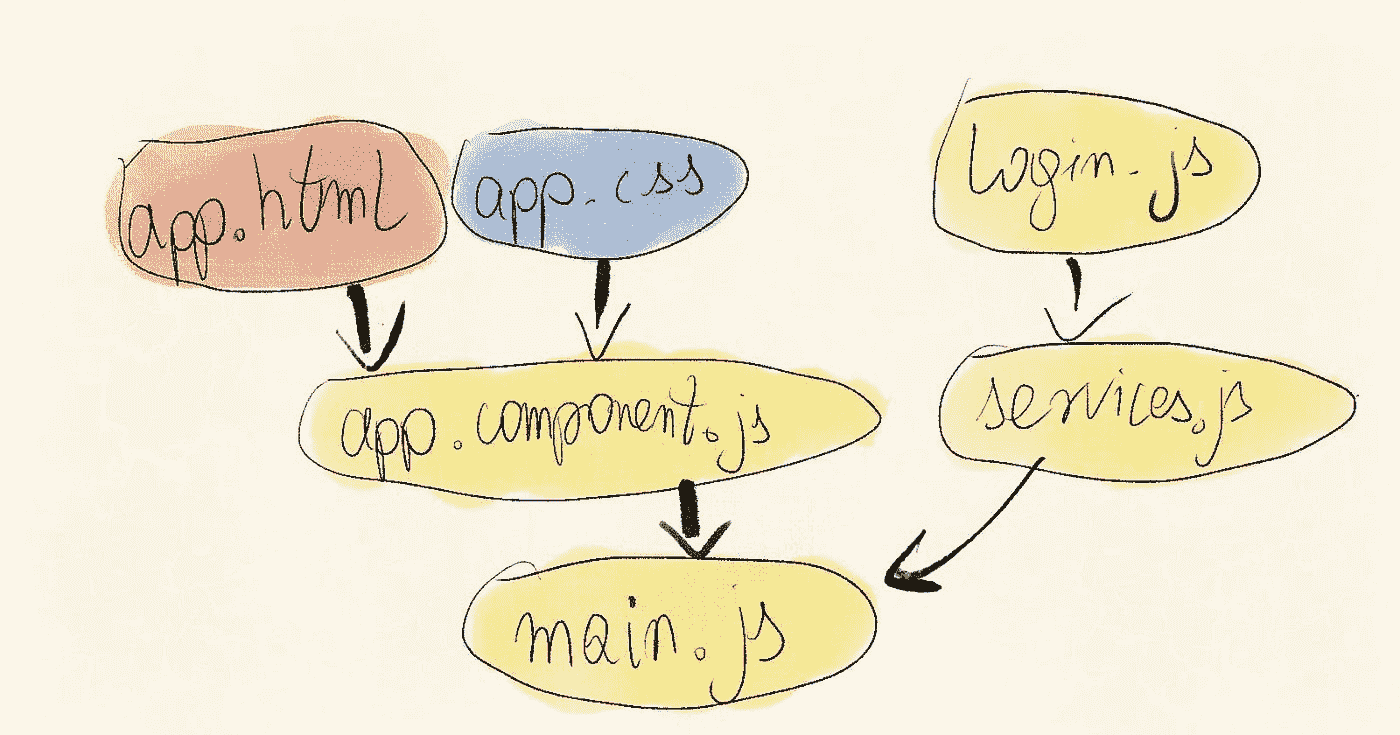 app.html
app.css
login.js
app.component.js
services.js
main.js